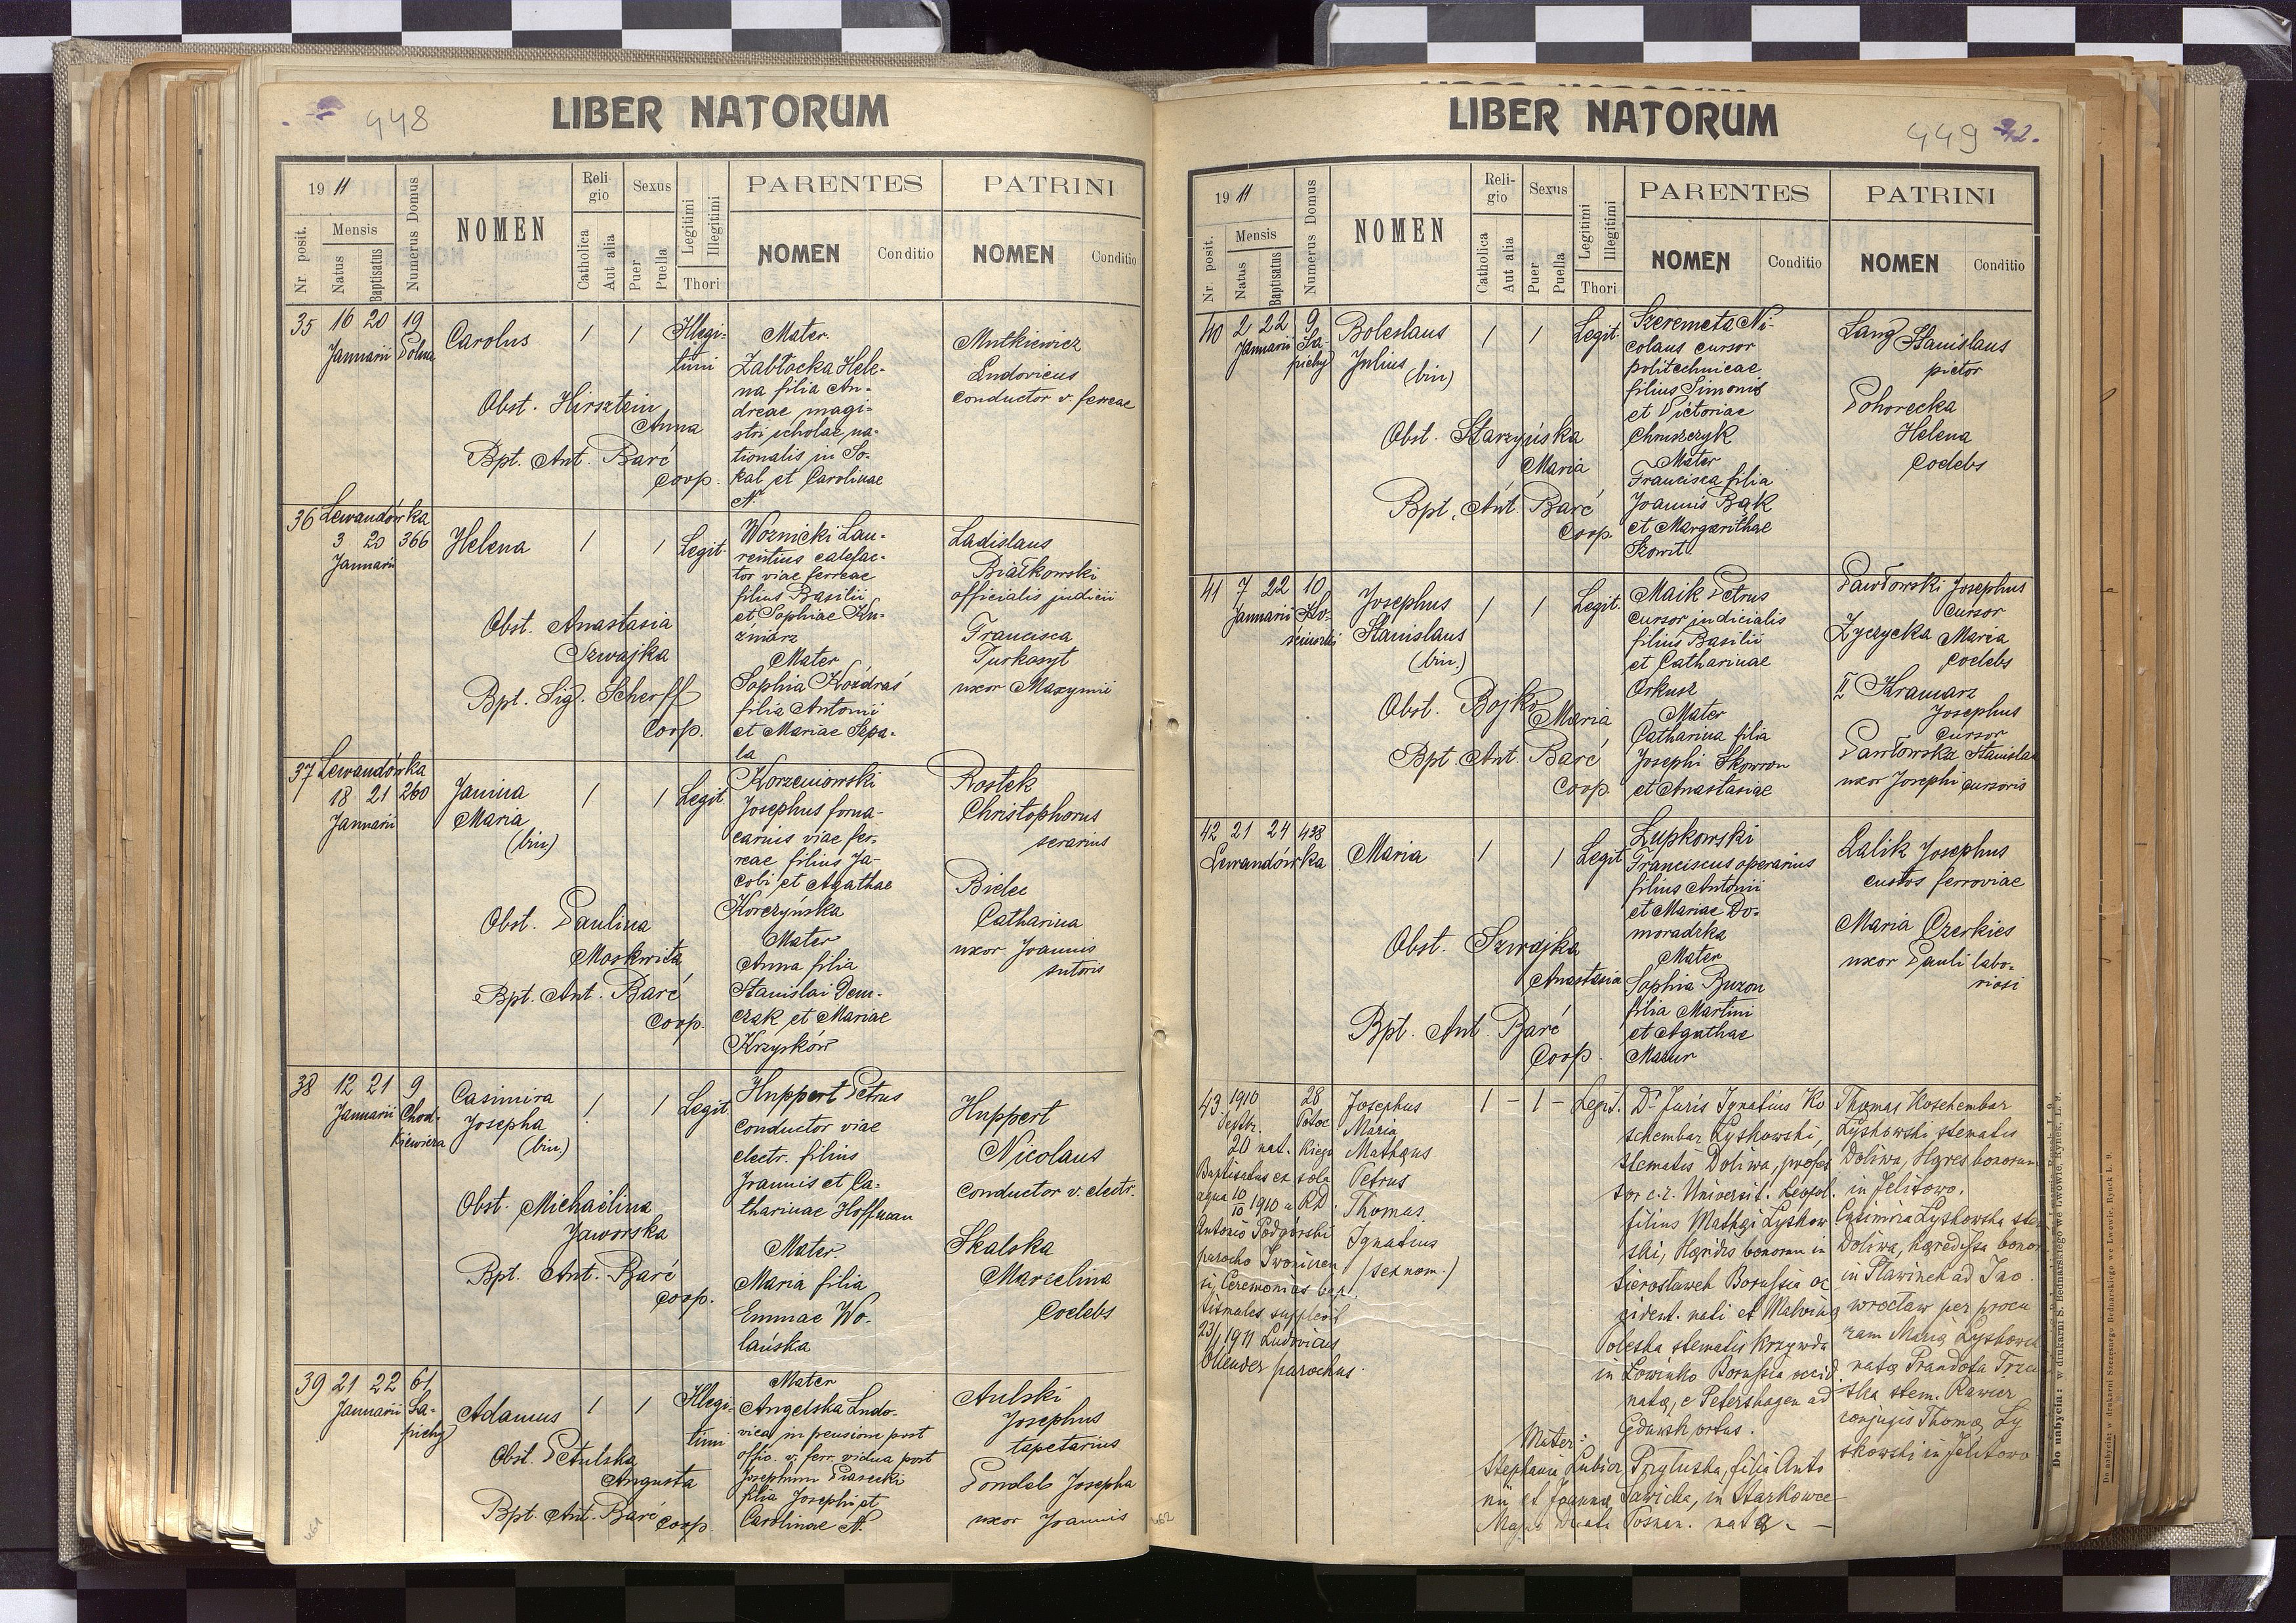 448
LIBER NATORUM
1911
Nr. posit.
Mensis
Natus
Baptisatus
Numerus Domus
NOMEN
Religio
Catholica
Aut alia
Sexus
Puer
Puella
Legitimi
Illegitimi
Thori
PARENTES
NOMEN
Conditio
PATRINI
NOMEN
Conditio
35 16 20 19
Januarii Polna
Carolus
1 1
Illegi-
timi
Obst. Hirsztein
Anna
Bpt. Ant. Barć
Coop.
Mater.
Zabłocka Hele-
na filia An-
dreae magi-
stri scholae na-
tionalis in So-
kal et Carolinae
N.
Mutkiewicz
Ludovicus
conductor v. ferreae
36 Lewandówka
3 20 366
Januarii
Helena
1 1 Legit.
Obst. Anastasia
Szwajka
Bpt. Sig. Scherff
Coop.
Woźnicki Lau-
rentius calefac-
tor viae ferreae
filius Basilii
et Sophiae Ku-
źmiarz
Mater
Sophia Kozdraś
filia Antonii
et Mariae Sepa-
la
Ladislaus
Białkowski
officialis judicii
Francisca
Turkasyt
uxor Maxymii
37 Lewandówka
18 21 260
Januarii
Janina
Maria
(bin)
1 1 Legit.
Obst. Paulina
Moskwita
Bpt. Ant. Barć
Coop.
Korzeniowski
Josephus forna-
carius viae fer-
reae filius Ja-
cobi et Agathae
Korczyńska
Mater
Anna filia
Stanislai Dem-
czak et Mariae
Krzysków
Rostek
Christophorus
serarius
Bielec
Catharina
uxor Joannis
sutoris
38 12 21 9
Januarii Chod-
kiewicza
Casimira
Josepha
(bin)
1 1 Legit.
Obst. Michaëlina
Jaworska
Bpt. Ant. Barć
Coop.
Huppert Petrus
conductor viae
electr. filius
Joannis et Ca-
tharinae Hoffman
Mater.
Maria filia
Emmae Wo-
lańska
Huppert
Nicolaus
conductor v. electr.
Skalska
Marcelina
Coelebs
39 21 22 61
Januarii Sa-
piehy
Adamus
1 1
Illegi-
timi
Obst. Petulska
Augusta
Bpt. Ant. Barć
Coop.
Mater
Angelska Ludo-
vica in pensione post
offic. v. ferr. vidua post
Josephum Piasecki
filia Josephi et
Carolinae N.
Aulski
Josephus
tapetarius
Pondel Josepha
uxor Joannis
461
LIBER NATORUM
449 42.
1911
Nr. posit.
Mensis
Natus
Baptisatus
Numerus Domus
NOMEN
Reli-
gio
Catholica
Aut alia
Sexus
Puer
Puella
Legitimi
Illegitimi
Thori
PARENTES
NOMEN
Conditio
PATRINI
NOMEN
Conditio
40 2 22 9
Januarii Sa-
piehy
Boleslaus
Julius
(bin)
1 1 Legit.
Obst. Starzyńska
Maria
Bpt. Ant. Barć
Coop.
Szeremeta Ni-
colaus cursor
politechnicae
filius Simonis
et Victoriae
Chruszczyk
Mater
Francisca filia
Joannis Bąk
et Margarithae
Skowit.
Lang Stanislaus
pictor
Pohorecka
Helena
Coelebs
41 7 22 10
Januarii
Josephus
Stanislaus
(bin.)
1 1 Legit.
Obst. Bojko
Maria
Bpt. Ant. Barć
Coop.
Maik Petrus
cursor judicialis
filius Basilii
et Catharinae
Orkusz
Mater
Catharina filia
Josephi Skowron
et Anastasiae
Pawłowski Josephus
cursor
Życzycka Maria
coelebs
II Kramarz
Josephus
cursor
Pawłowska Stanislaa
uxor Josephi cursoris
42 21 24 438
Lewandówka
Maria
1 1 Legit
Obst. Szwajka
Anastasia
Bpt. Ant. Barć
Coop.
Łupkowski
Franciscus operarius
filius Antonii
et Mariae Do-
moradzka
Mater
Sophia Buzon
filia Martini
et Agathae
Mazur
Lalik Josephus
custos ferroviae
Maria Czerkies
uxor Pauli labo-
riosi
43 1910 28
Septbr. Potoc
20 nat. kiego
Baptisatus ex sola
aqua 10/10 1910 a RD.
Antonio Podgórski
parocho Iwonicen
si, Ceremonias bap
tismales supplevit
23/1 1911 Ludovicus
Ollender parochus.
Josephus
Maria
Mathæus
Petrus
Thomas
Ignatius
(sex nom.)
1 - 1 - Legit.
Dr. Juris Ignatius Ko
schembar Łyskowski,
stematis Doliwa, profes
sor c.r. Universit. Leopol.
filius Mathæi Łyskow
ski, Hæredis bonorum in
Sierosławek Borussia oc
cident. nati et Malvinæ
Poleska stematis Krzywda
in Łowinko Borussia occid.
natæ, e Petershagen ad
Gdańsk ortus.
Mater:
Stephania Lubicz Przyłuska, filia Anto
nii et Joannæ Sawicka, in Starkowce
Magno Ducatu Posnan. nata. —
Thomas Koschembar
Łyskowski stematis
Doliwa, Hæres bonorum
in Jelitowo.
Casimira Łyskowska ste
Doliwa, hæredissa bonor
in Sławinek ad Ino
wrocław per procu
ram Mariæ Łyskowska
natæ Prandota Trzciń
ska stem. Rawicz
conjugis Thomæ Ły
skowski in Jelitowo
462
Do nabycia: w drukarni S. Bednarskiego we Lwowie, Rynek L. 9.
Do nabycia: w drukarni Szczęsnego Bednarskiego we Lwowie, Rynek L. 9.